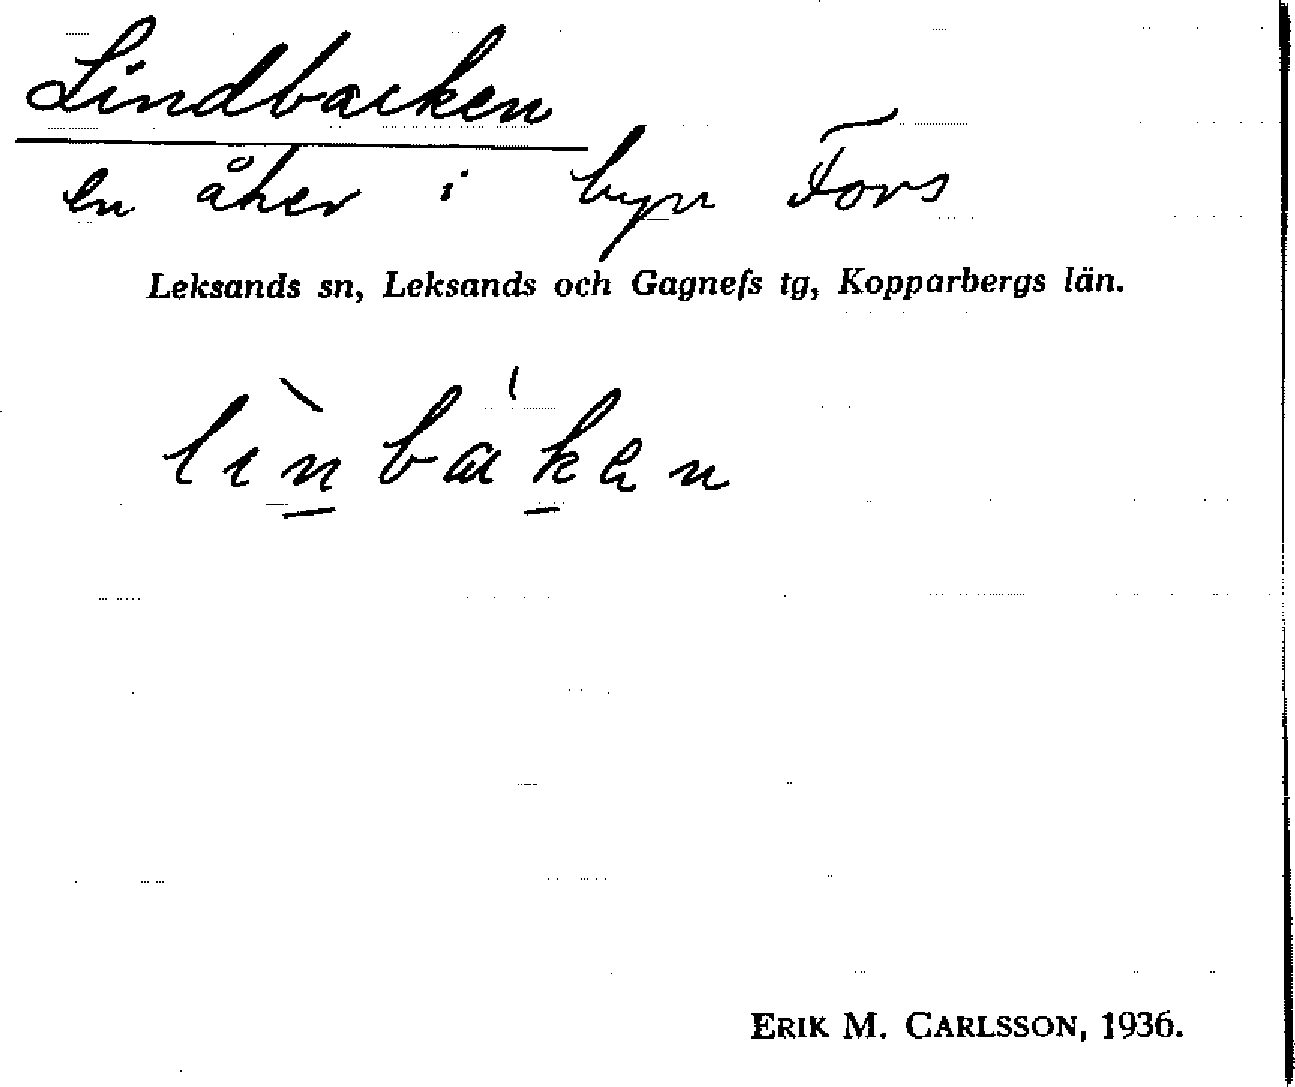 Lindbacken
en åker i byn Fors
Leksands sn, Leksands och Gagnefs tg, Kopparbergs län.
lìn̲bák̲en
ERIK M. CARLSSON, 1936.